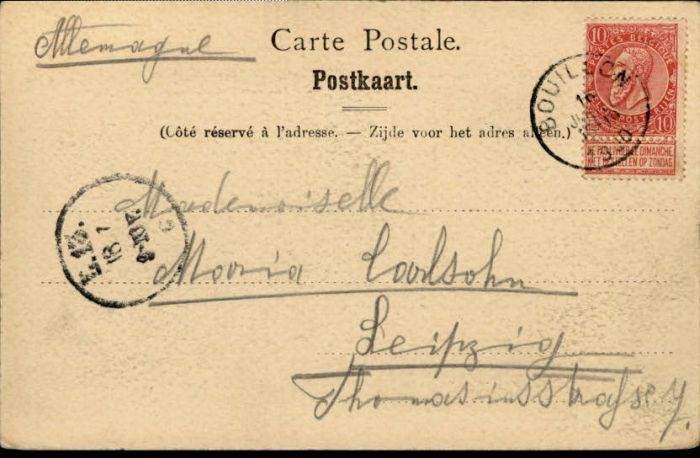 Allemagne
Carte Postale.
Postkaart.
(Côté réservé à l'adresse. — Zijde voor het adres alleen.)
10 10
BOUILLON
NE PAS LIVRER LE DIMANCHE
NIET BESTELLEN OP ZONDAG
Mademoiselle
Maria Carlsohn
Leipzig
Thomasiusstrasse
18 7